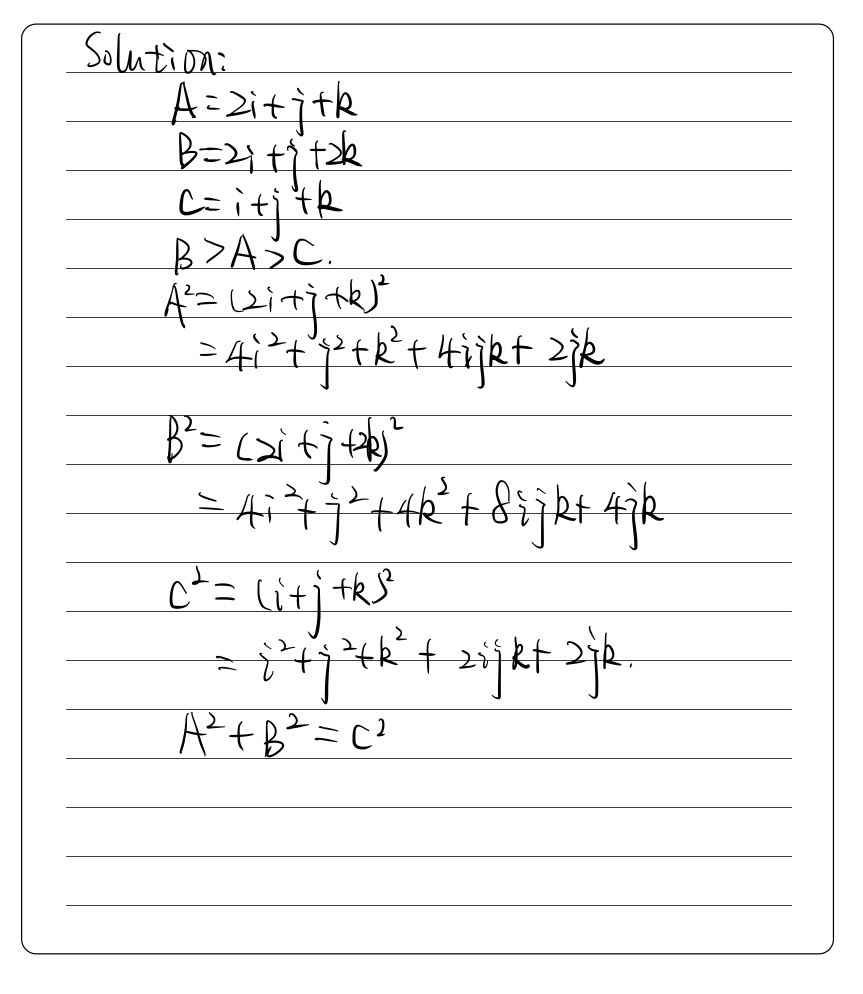 Solution:
A=2i+j+k
B=2i+j+2k
C=i+j+k
B>A>C.
A²=(2i+j+k)²
=4i²+j²+k²+4ijk+2jk
B²=(2i+j+2k)²
=4i²+j²+4k²+8ijk+4jk
C²=(i+j+k)²
=i²+j²+k²+2ijk+2jk.
A²+B²=C²